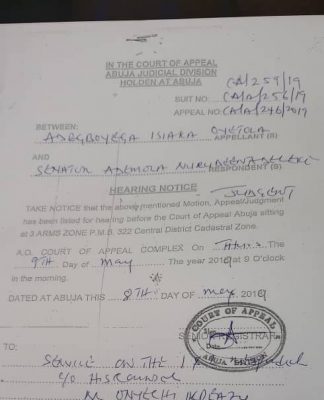 IN THE COURT OF APPEAL
ABUJA JUDICIAL DIVISION
HOLDEN AT ABUJA
CA/A/259/19
SUIT NO: CA/A/256/19
APPEAL NO: CA/A/246/2019
BETWEEN:
ADEGBOYEGA ISIAKA OYETOLA
APPELLANT (S)
AND
SENATOR ADEMOLA NURUDEEN ADELEKE
RESPONDENT (S)
HEARING NOTICE
TAKE NOTICE that the above mentioned Motion, Appeal/Judgment
has been listed for hearing before the Court of Appeal Abuja sitting
at 3 ARMS ZONE P.M.B. 322 Central District Cadastral Zone.
A.O. COURT OF APPEAL COMPLEX On Thurs The
9TH Day of May The year 2019 at 9 O'clock
in the morning.
DATED AT ABUJA THIS 8TH DAY OF May 2019
COURT OF APPEAL
REGISTRAR
ABUJA
TO:
SERVICE ON THE 1
C/O HIS COUNSEL
ONYECHI IKPEAZU